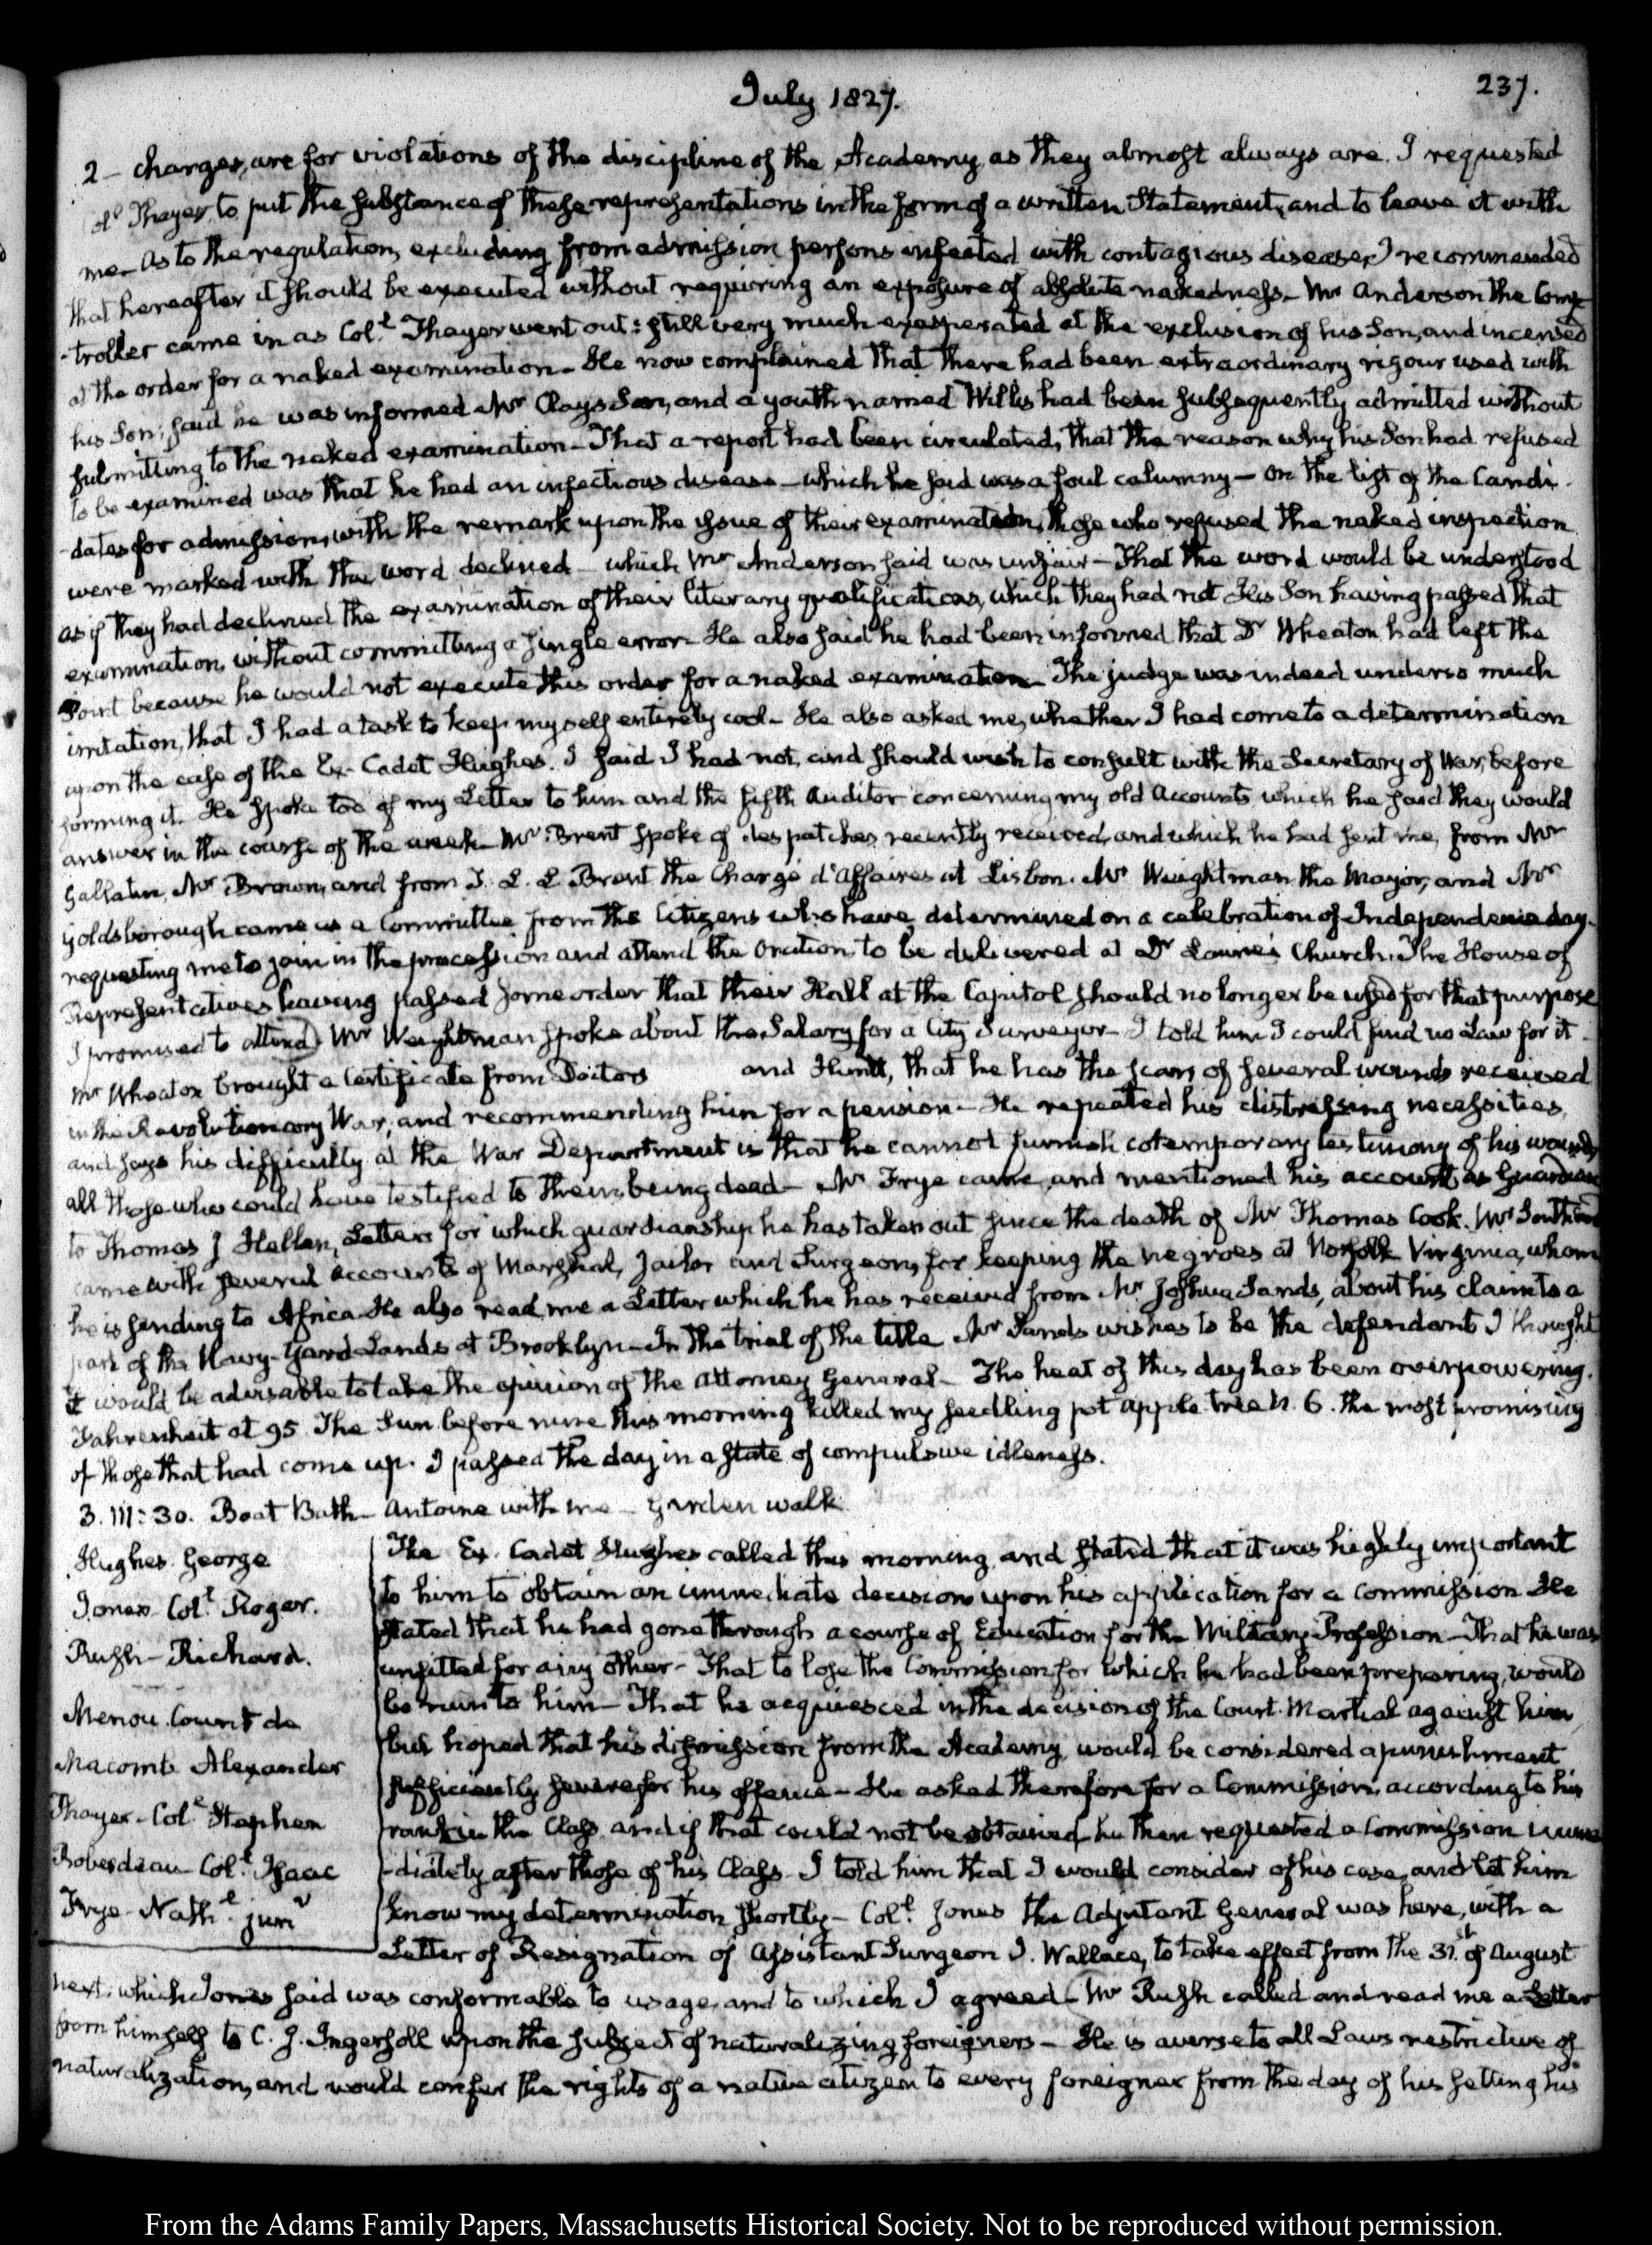 July 1827.
237.
2 – charges, are for violations of the discipline of the Academy, as they almost always are. I requested
Col.l Thayer, to put the substance of these representations in the form of a written Statement, and to leave it with
me – As to the regulation, excluding from admission persons infested with contagious diseases, I recommended
that hereafter it should be executed without requiring an exposure of absolute nakedness – Mr Anderson the Comp-
-troller came in as Col.l Thayer went out: still very much exasperated at the exclusion of his Son, and incensed
at the order for a naked examination – He now complained that there had been extraordinary rigour used with
his Son; said he was informed Mr Clay's Son, and a youth named Willis had been subsequently admitted without
submitting to the naked examination – That a report had been circulated, that the reason why his Son had refused
to be examined was that he had an infectious disease – which he said was a foul calumny – On the list of the Candi-
-dates for admission, with the remark upon the issue of their examination, those who refused the naked inspection
were marked with the word declined – which Mr Anderson said was unfair – That the word would be understood
as if they had declined the examination of their literary qualifications, which they had not His Son having passed that
examination, without committing a single error – He also said he had been informed that Dr Wheaton had left the
Point because he would not execute this order for a naked examination – The judge was indeed under so much
irritation, that I had a task to keep myself entirely cool – He also asked me, whether I had come to a determination
upon the case of the Ex-Cadet Hughes. I said I had not, and should wish to consult with the Secretary of War, before
forming it. He spoke too of my Letter to him and the fifth Auditor concerning my old Accounts which he said they would
answer in the course of the week – Mr Brent spoke of despatches, recently received, and which he had sent me, from Mr
Gallatin, Mr Brown, and from T. L. L. Brent the Chargé d'Affaires at Lisbon. Mr Weightman the Mayor, and Mr
Goldsborough came as a Committee from the Citizens who have, determined on a celebration of Independence day.
requesting me to join in the procession and attend the Oration, to be delivered at Dr Laurie's Church. The House of
Representatives having passed some order that their Hall at the Capitol should no longer be used for that purpose
I promised to attend. Mr Weightman spoke about the Salary for a City Surveyor – I told him I could find no Law for it –
Mr Wheaton brought a Certificate from Doctors and Hunt, that he has the scars of several wounds received
in the Revolutionary War; and recommending him for a pension – He repeated his distressing necessities,
and says his difficulty at the War Department is that he cannot furnish cotemporary testimony of his wounds
all those who could have testified to them, being dead – Mr Frye came, and mentioned his account, as Guardian
to Thomas J Hellen, Letters for which guardianship he has taken out since the death of Mr Thomas Cook. Mr Southard
came with several accounts of Marshal, Jailor and Surgeon, for keeping the negroes at Norfolk Virginia, whom
he is sending to Africa. He also read me a Letter which he has received from Mr Joshua Sands, about his claim to a
part of the Navy-Yard Lands at Brooklyn – In the trial of the title Mr Sands wishes to be the defendant I thought
it would be advisable to take the opinion of the Attorney General – The heat of this day has been overpowering.
Fahrenheit at 95. The Sun before nine this morning killed my seedling pot apple tree n. 6. the most promising
of those that had come up. I passed the day in a state of compulsive idleness.
3. III:30. Boat Bath – Antoine with me – Garden walk.
Hughes. George
Jones. Col.l Roger.
Rush – Richard.
Menou. Count de
Macomb Alexander
Thayer – Col.l Stephen
Roberdeau Col.l Isaac
Frye – Nath.l junr
The Ex. Cadet Hughes called this morning, and stated that it was highly important
to him to obtain an immediate decision upon his application for a commission He
stated that he had gone through a course of Education for the Military Profession – That he was
unfitted for any other – That to lose the Commission for which he had been preparing, would
be ruin to him – That he acquiesced in the decision of the Court. Martial against him
but hoped that his dismission from the Academy, would be considered a punishment
sufficiently severe for his offence – He asked therefore for a Commission, according to his
rank in the Class, and if that could not be obtained, he then requested a Commission imme
-diately after those of his Class. I told him that I would consider of his case, and let him
know my determination shortly – Col.l Jones the Adjutant General was here, with a
Letter of Resignation of Assistant Surgeon J. Wallace, to take effect from the 31.st of August
next: which Jones said was conformable to usage, and to which I agreed – Mr Rush called and read me a Letter
from himself to C. J. Ingersoll upon the subject of naturalizing foreigners – He is averse to all Laws restrictive of
naturalization, and would confer the rights of a native citizen to every foreigner from the day of his setting his
From the Adams Family Papers, Massachusetts Historical Society. Not to be reproduced without permission.